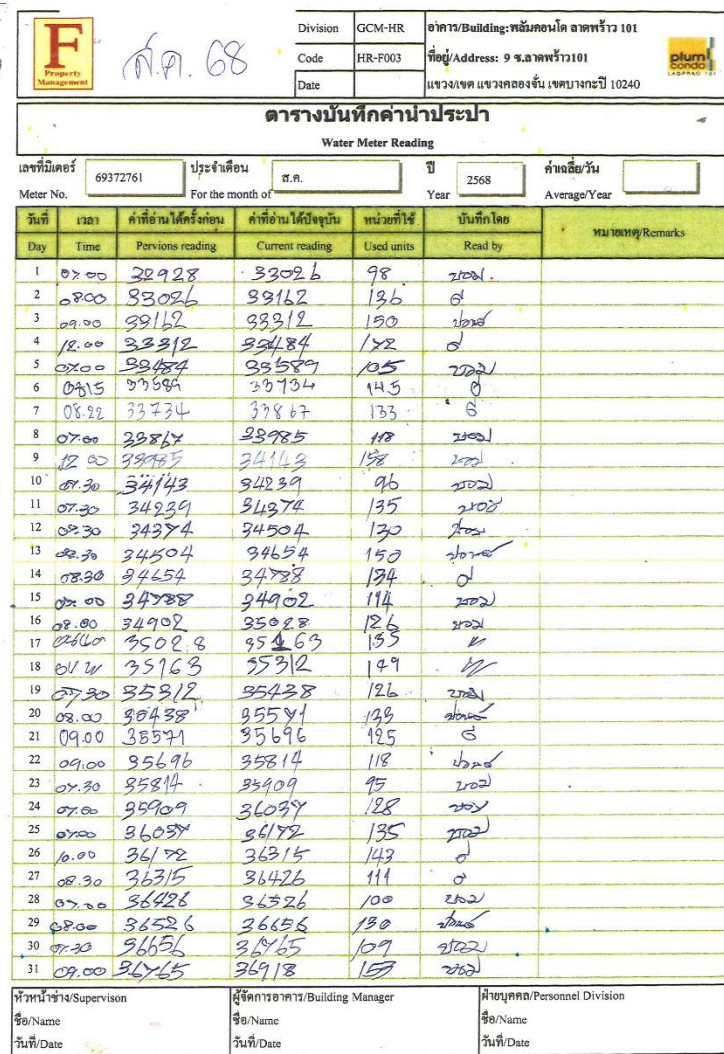 F
Property
Management
ส.ค. 68
Division GCM-HR
Code HR-F003
Date
อาคาร/Building:พลัมคอนโด ลาดพร้าว 101
ที่อยู่/Address: 9 ซ.ลาดพร้าว101
แขวง/เขต แขวงคลองจั่น เขตบางกะปิ 10240
plum
condo
LADPRAO 101
ตารางบันทึกค่าน้ำประปา
Water Meter Reading
เลขที่มิเตอร์ 69372761 ประจำเดือน ส.ค. ปี 2568 ค่าเฉลี่ย/วัน
Meter No. For the month of Year Average/Year
วันที่ เวลา ค่าที่อ่านได้ครั้งก่อน ค่าที่อ่านได้ปัจจุบัน หน่วยที่ใช้ บันทึกโดย หมายเหตุ/Remarks
Day Time Pervions reading Current reading Used units Read by
1 07.00 32928 33026 98
2 08.00 33026 33162 136
3 09.00 33162 33312 150
4 12.00 33312 33484 172
5 07.00 33484 33589 105
6 0815 33589 33734 145
7 08.22 33734 33867 133
8 07.00 33867 33985 118
9 12 00 33985 34143 158
10 07.30 34143 34239 96
11 07.30 34239 34374 135
12 07.30 34374 34504 130
13 08.30 34504 34654 150
14 08.30 34654 34788 134
15 07.00 34788 34902 114
16 08.00 34902 35028 126
17 35028 35163 135
18 35163 35312 149
19 07.30 35312 35438 126
20 08.00 35438 35571 133
21 09.00 35571 35696 125
22 09.00 35696 35814 118
23 07.30 35814 35909 95
24 07.00 35909 36037 128
25 07.00 36037 36172 135
26 10.00 36172 36315 143
27 08.30 36315 36426 111
28 07.00 36426 36526 100
29 08.00 36526 36656 130
30 07.30 36656 36765 109
31 09.00 36765 36918 153
หัวหน้าช่าง/Supervison ผู้จัดการอาคาร/Building Manager ฝ่ายบุคคล/Personnel Division
ชื่อ/Name ชื่อ/Name ชื่อ/Name
วันที่/Date วันที่/Date วันที่/Date